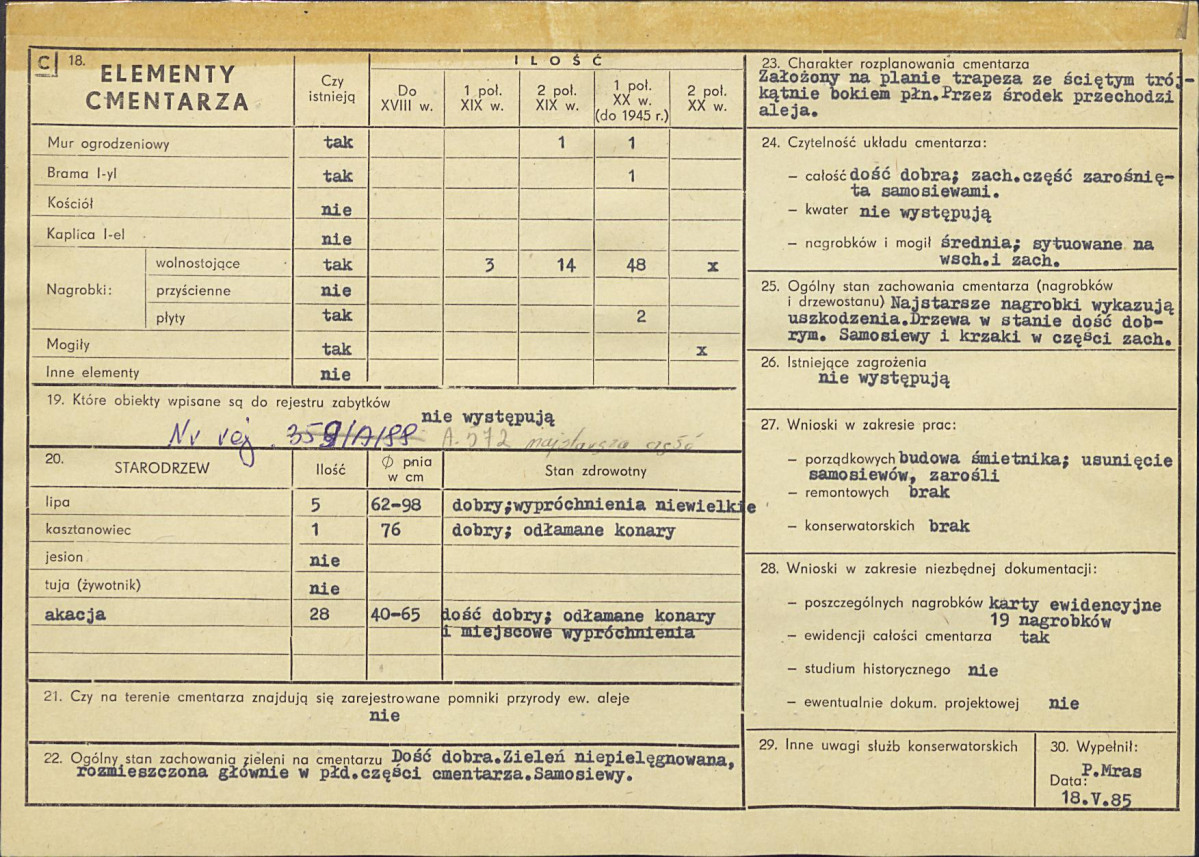 C 18. ELEMENTY CMENTARZA
Czy istnieją
ILOŚĆ
Do XVIII w.
1 poł. XIX w.
2 poł. XIX w.
1 poł. XX w. (do 1945 r.)
2 poł. XX w.
Mur ogrodzeniowy tak 1 1
Brama I-yl tak 1
Kościół nie
Kaplica I-el nie
Nagrobki:
wolnostojące tak 3 14 48 x
przyścienne nie
płyty tak 2
Mogiły tak x
Inne elementy nie
19. Które obiekty wpisane są do rejestru zabytków
nie występują
Nr rej. 359/A/88 A-572 najstarsza część
20. STARODRZEW Ilość Ø pnia w cm Stan zdrowotny
lipa 5 62-98 dobry;wypróchnienia niewielkie
kasztanowiec 1 76 dobry; odłamane konary
jesion nie
tuja (żywotnik) nie
akacja 28 40-65 dość dobry; odłamane konary
i miejscowe wypróchnienia
21. Czy na terenie cmentarza znajdują się zarejestrowane pomniki przyrody ew. aleje
nie
22. Ogólny stan zachowania zieleni na cmentarzu Dość dobra.Zieleń niepielęgnowana,
rozmieszczona głównie w płd.części cmentarza.Samosiewy.
23. Charakter rozplanowania cmentarza
Założony na planie trapeza ze ściętym trój-
kątnie bokiem płn.Przez środek przechodzi
aleja.
24. Czytelność układu cmentarza:
– całość dość dobra; zach.część zarośnię-
ta samosiewami.
– kwater nie występują
– nagrobków i mogił średnia; sytuowane na
wsch.i zach.
25. Ogólny stan zachowania cmentarza (nagrobków
i drzewostanu) Najstarsze nagrobki wykazują
uszkodzenia.Drzewa w stanie dość dob-
rym. Samosiewy i krzaki w części zach.
26. Istniejące zagrożenia
nie występują
27. Wnioski w zakresie prac:
– porządkowych budowa śmietnika; usunięcie
samosiewów, zarośli
– remontowych brak
– konserwatorskich brak
28. Wnioski w zakresie niezbędnej dokumentacji:
– poszczególnych nagrobków karty ewidencyjne
19 nagrobków
– ewidencji całości cmentarza tak
– studium historycznego nie
– ewentualnie dokum. projektowej nie
29. Inne uwagi służb konserwatorskich
30. Wypełnił:
P.Mras
Data:
18.V.85